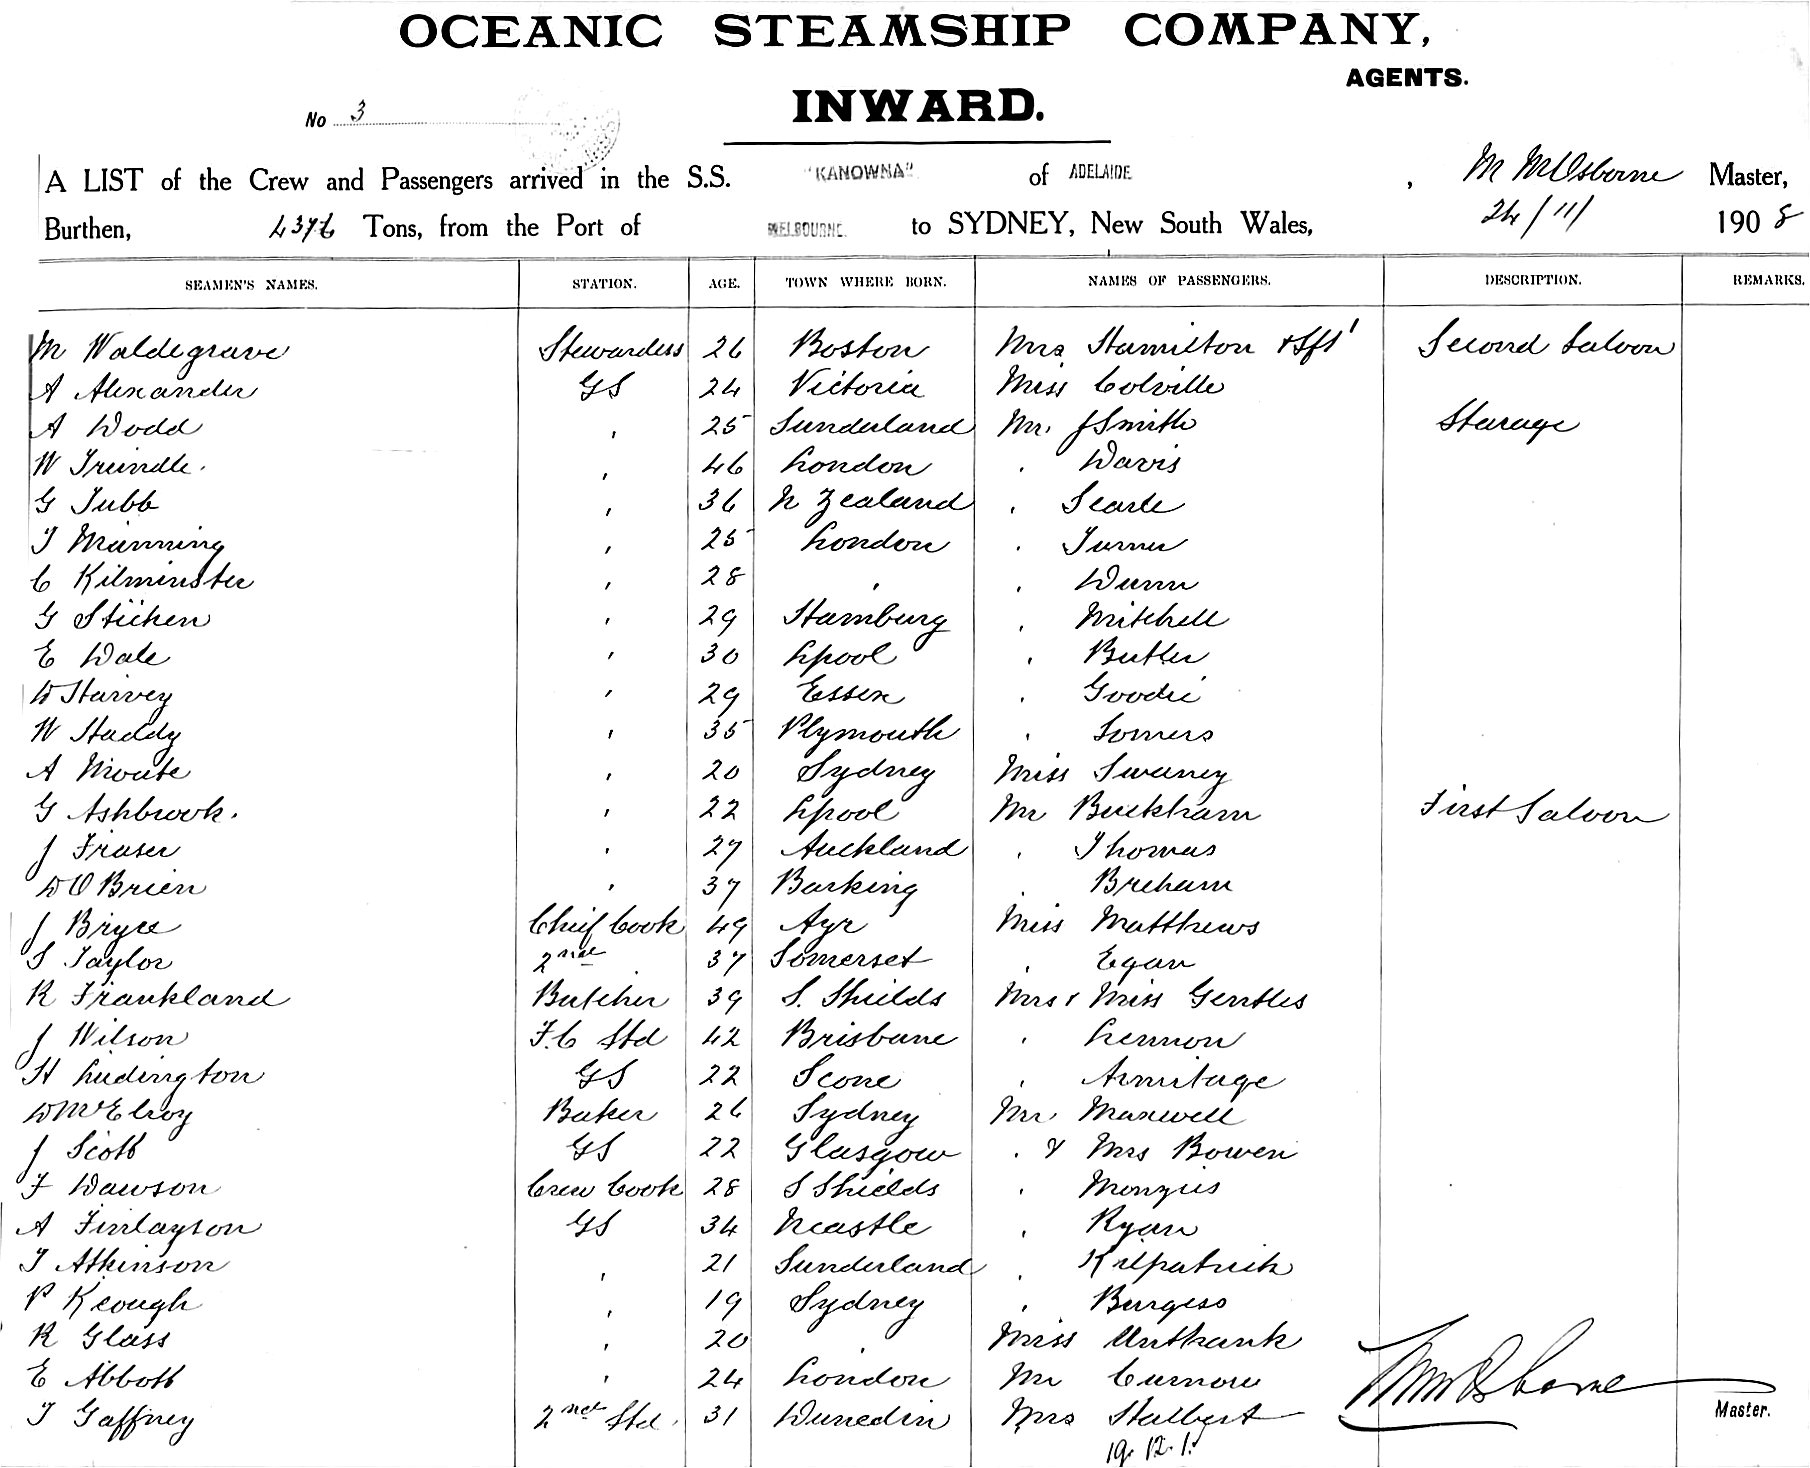 OCEANIC STEAMSHIP COMPANY,
AGENTS.
INWARD.
No 3
A LIST of the Crew and Passengers arrived in the S.S. "KANOWNA" of ADELAIDE, M McOsborne Master,
Burthen, 4376 Tons, from the Port of MELBOURNE. to SYDNEY, New South Wales, 24/11/ 1908
SEAMEN'S NAMES. STATION. AGE. TOWN WHERE BORN. NAMES OF PASSENGERS. DESCRIPTION. REMARKS.
M Waldegrave Stewardess 26 Boston Mrs Hamilton Second Saloon
A Alexander GS 24 Victoria Miss Colville
A Dodd , 25 Sunderland Mr. J Smith Starage
W Trundle. , 46 London . Davis
G Tubb , 36 N Zealand . Searle
T Manning , 25 London . Turner
C Kilminster , 28 , . Dunn
G Stichen , 29 Hamburg . Mitchell
E Dale , 30 Lpool . Butler
D Harvey , 29 Essex . Goodie
W Haddy , 35 Plymouth . Somers
A Moate , 20 Sydney Miss Swaney
G Ashbrook. , 22 Lpool Mr Buckham First Saloon
J Fraser , 27 Auckland . Thomas
D O'Brien , 37 Barking . Breham
J Bryce Chief Cook 49 Ayr Miss Matthews
S Taylor 2nd 37 Somerset . Egan
R Frankland Butcher 39 S. Shields Mrs & Miss Gentles
J Wilson F.C Std 42 Brisbane . Lennon
H Ludington GS 22 Scone . Armitage
D McElroy Baker 26 Sydney Mr Maxwell
J Scott GS 22 Glasgow . & Mrs Bowen
F Dawson Crew Cook 28 S Shields . Monzies
A Finlayson GS 34 Ncastle . Ryan
T Atkinson , 21 Sunderland . Kilpatrick
P Keough , 19 Sydney . Burgess
R Glass , 20 , Miss Unthank
E Abbott , 24 London Mr Curnow
T Gaffney 2nd Std. 31 Dunedin Mrs Halbert
M McOsborne
Master.
19. 12. 1.